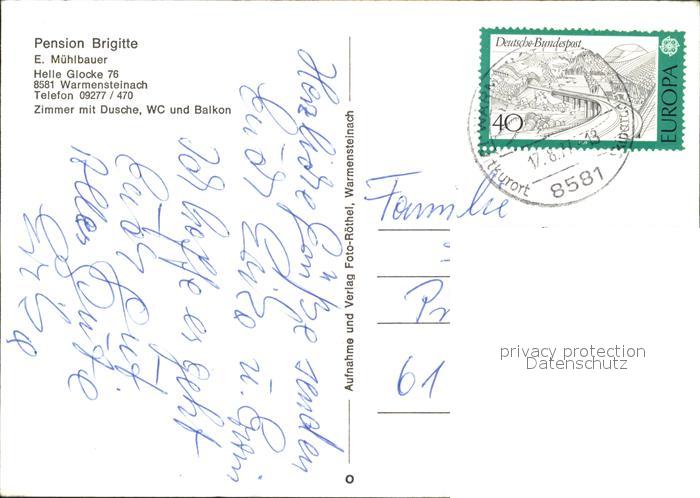 Pension Brigitte
E. Mühlbauer
Helle Glocke 76
8581 Warmensteinach
Telefon 09277 / 470
Zimmer mit Dusche, WC und Balkon
Herzliche Grüße senden
Euch
Ich hoffe es geht
Euch Gut
Alles Gute
Aufnahme und Verlag Foto-Röthel, Warmensteinach
Deutsche Bundespost
40
EUROPA
17.8.77-13
8581
Familie
61
privacy protection
Datenschutz